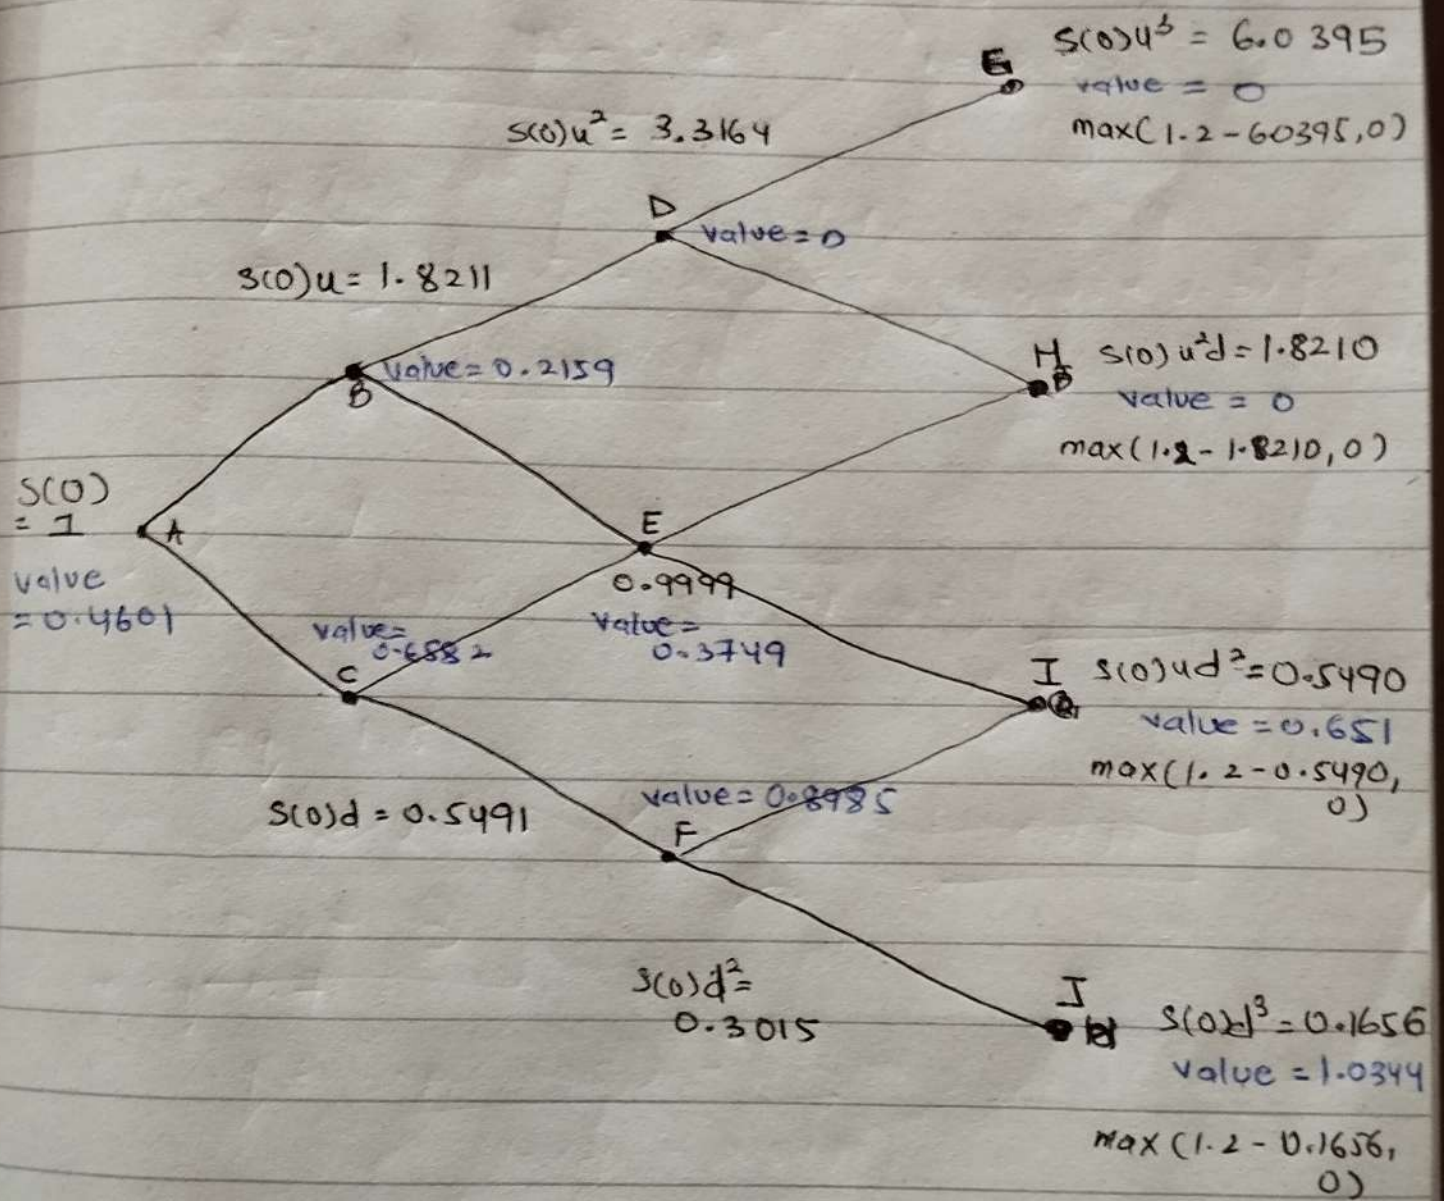 G
S(0)u³ = 6.0395
value = 0
max(1.2-60395,0)
S(0)u² = 3.3164
D
value = 0
S(0)u = 1.8211
value = 0.2159
B
H
S(0)u²d = 1.8210
value = 0
max(1.2-1.8210,0)
S(0)
= 1
A
value
= 0.4601
E
0.9999
value =
0.3749
value =
0.6882
C
I
S(0)ud² = 0.5490
value = 0.651
max(1.2-0.5490,
0)
S(0)d = 0.5491
value = 0.8985
F
S(0)d² =
0.3015
J
S(0)d³ = 0.1656
value = 1.0344
max(1.2-0.1656,
0)